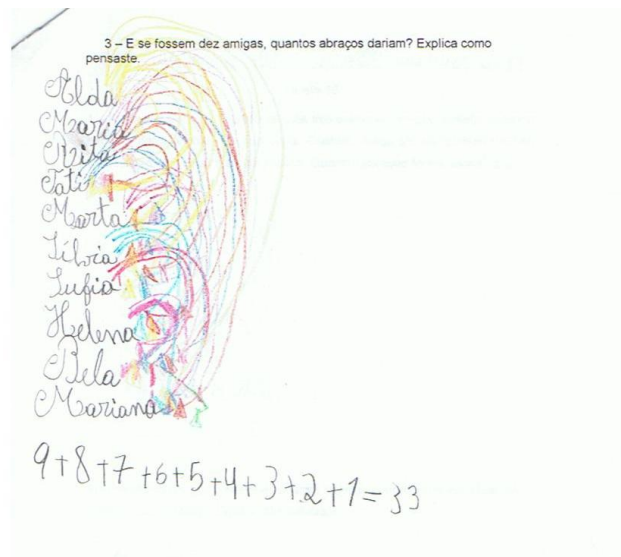 3 – E se fossem dez amigas, quantos abraços dariam? Explica como
pensaste.
Alda
Maria
Rita
Tati
Marta
Sílvia
Sufia
Helena
Bela
Mariana
9+8+7+6+5+4+3+2+1=33